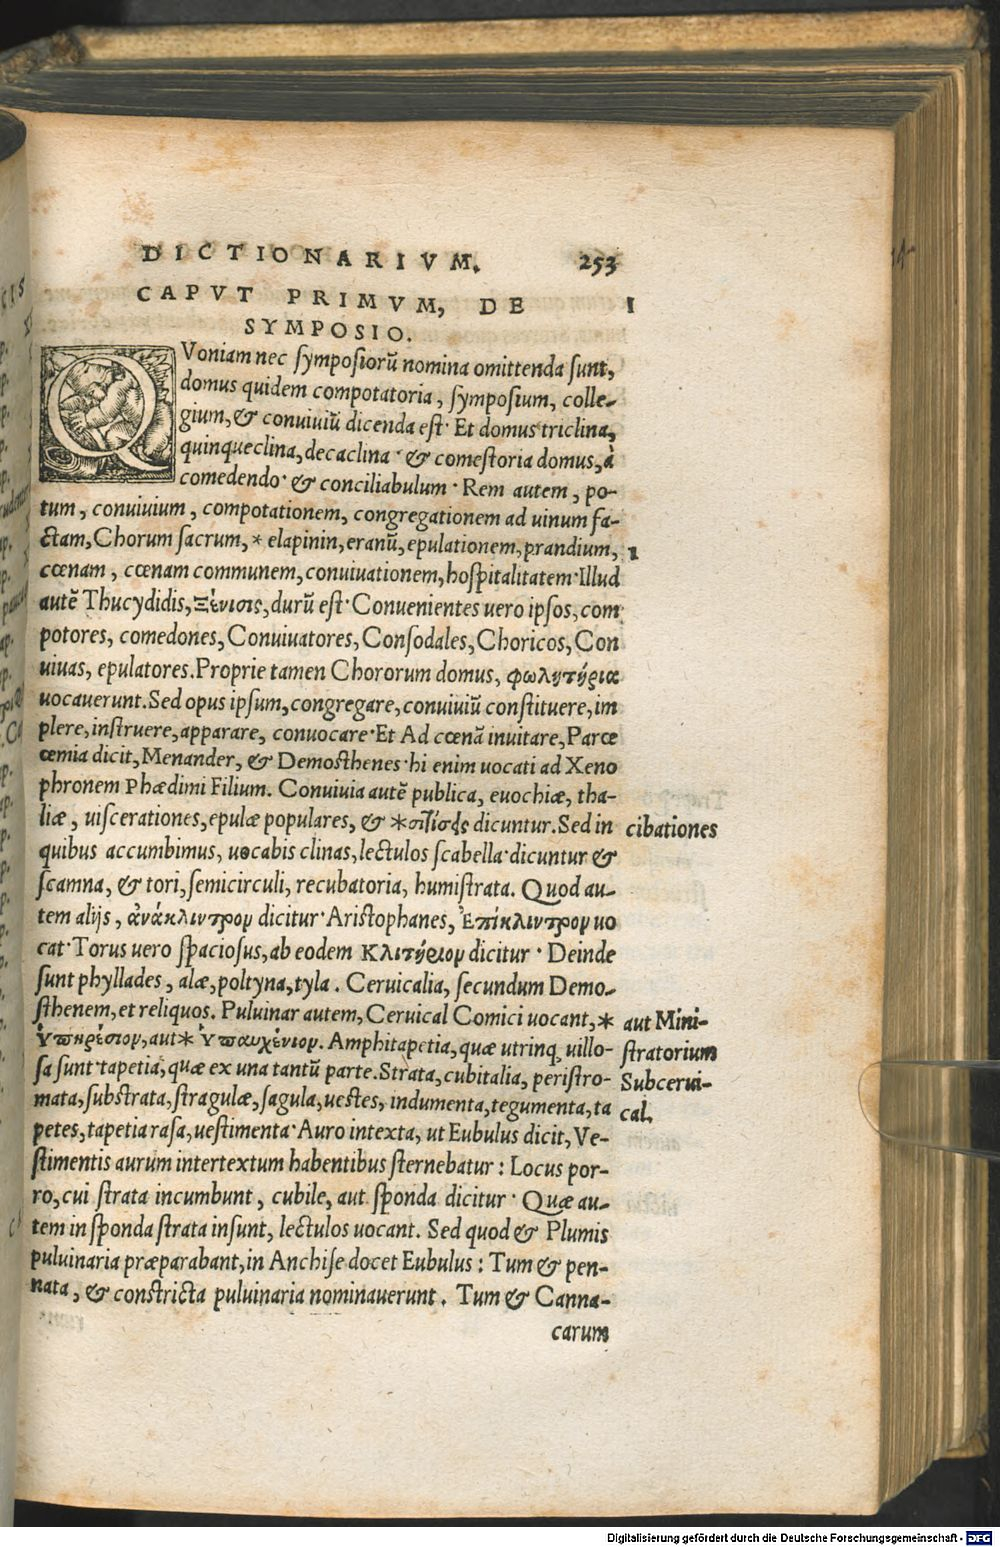 DICTIONARIVM. 253
CAPVT PRIMVM, DE I
SYMPOSIO.
QVoniam nec symposiorũ nomina omittenda sunt,
domus quidem compotatoria, symposium, colle-
gium, & conuiuiũ dicenda est· Et domus triclina,
quinqueclina, decaclina · & comestoria domus, à
comedendo· & conciliabulum · Rem autem, po-
tum, conuiuium, compotationem, congregationem ad uinum fa-
ctam, Chorum sacrum, * elapinin, eranũ, epulationem, prandium, 1
cœnam, cœnam communem, conuiuationem, hospitalitatem· Illud
autẽ Thucydidis, Ξένισις, durũ est· Conuenientes uero ipsos, com
potores, comedones, Conuiuatores, Consodales, Choricos, Con
uiuas, epulatores. Proprie tamen Chororum domus, φωλητήρια
uocauerunt. Sed opus ipsum, congregare, conuiuiũ constituere, im
plere, instruere, apparare, conuocare· Et Ad cœnã inuitare, Parœ
œmia dicit, Menander, & Demosthenes· hi enim uocati ad Xeno
phronem Phædimi Filium. Conuiuia autẽ publica, euochiæ, tha-
liæ, uiscerationes, epulæ populares, & *σιτίσεις dicuntur. Sed in cibationes
quibus accumbimus, uocabis clinas, lectulos scabella· dicuntur &
scamna, & tori, semicirculi, recubatoria, humistrata. Quod au-
tem alijs, ἀνάκλιντρον dicitur· Aristophanes, Ἐπίκλιντρον uo
cat· Torus uero spaciosus, ab eodem Κλιτήριον dicitur · Deinde
sunt phyllades, alæ, poltyna, tyla. Ceruicalia, secundum Demo-
sthenem, et reliquos. Puluinar autem, Ceruical Comici uocant, * aut Mini-
Ὑπηρέσιον, aut* Ὑπαυχένιον. Amphitapetia, quæ utrinq; uillo- stratorium
sa sunt· tapetia, quæ ex una tantũ parte. Strata, cubitalia, peristro- Subcerui-
mata, substrata, stragulæ, sagula, uestes, indumenta, tegumenta, ta cal.
petes, tapetia rasa, uestimenta· Auro intexta, ut Eubulus dicit, Ve-
stimentis aurum intertextum habentibus sternebatur : Locus por-
ro, cui strata incumbunt, cubile, aut sponda dicitur · Quæ au-
tem in sponda strata insunt, lectulos uocant. Sed quod & Plumis
puluinaria præparabant, in Anchise docet Eubulus : Tum & pen-
nata, & constricta puluinaria nominauerunt. Tum & Canna-
carum
Digitalisierung gefördert durch die Deutsche Forschungsgemeinschaft - DFG